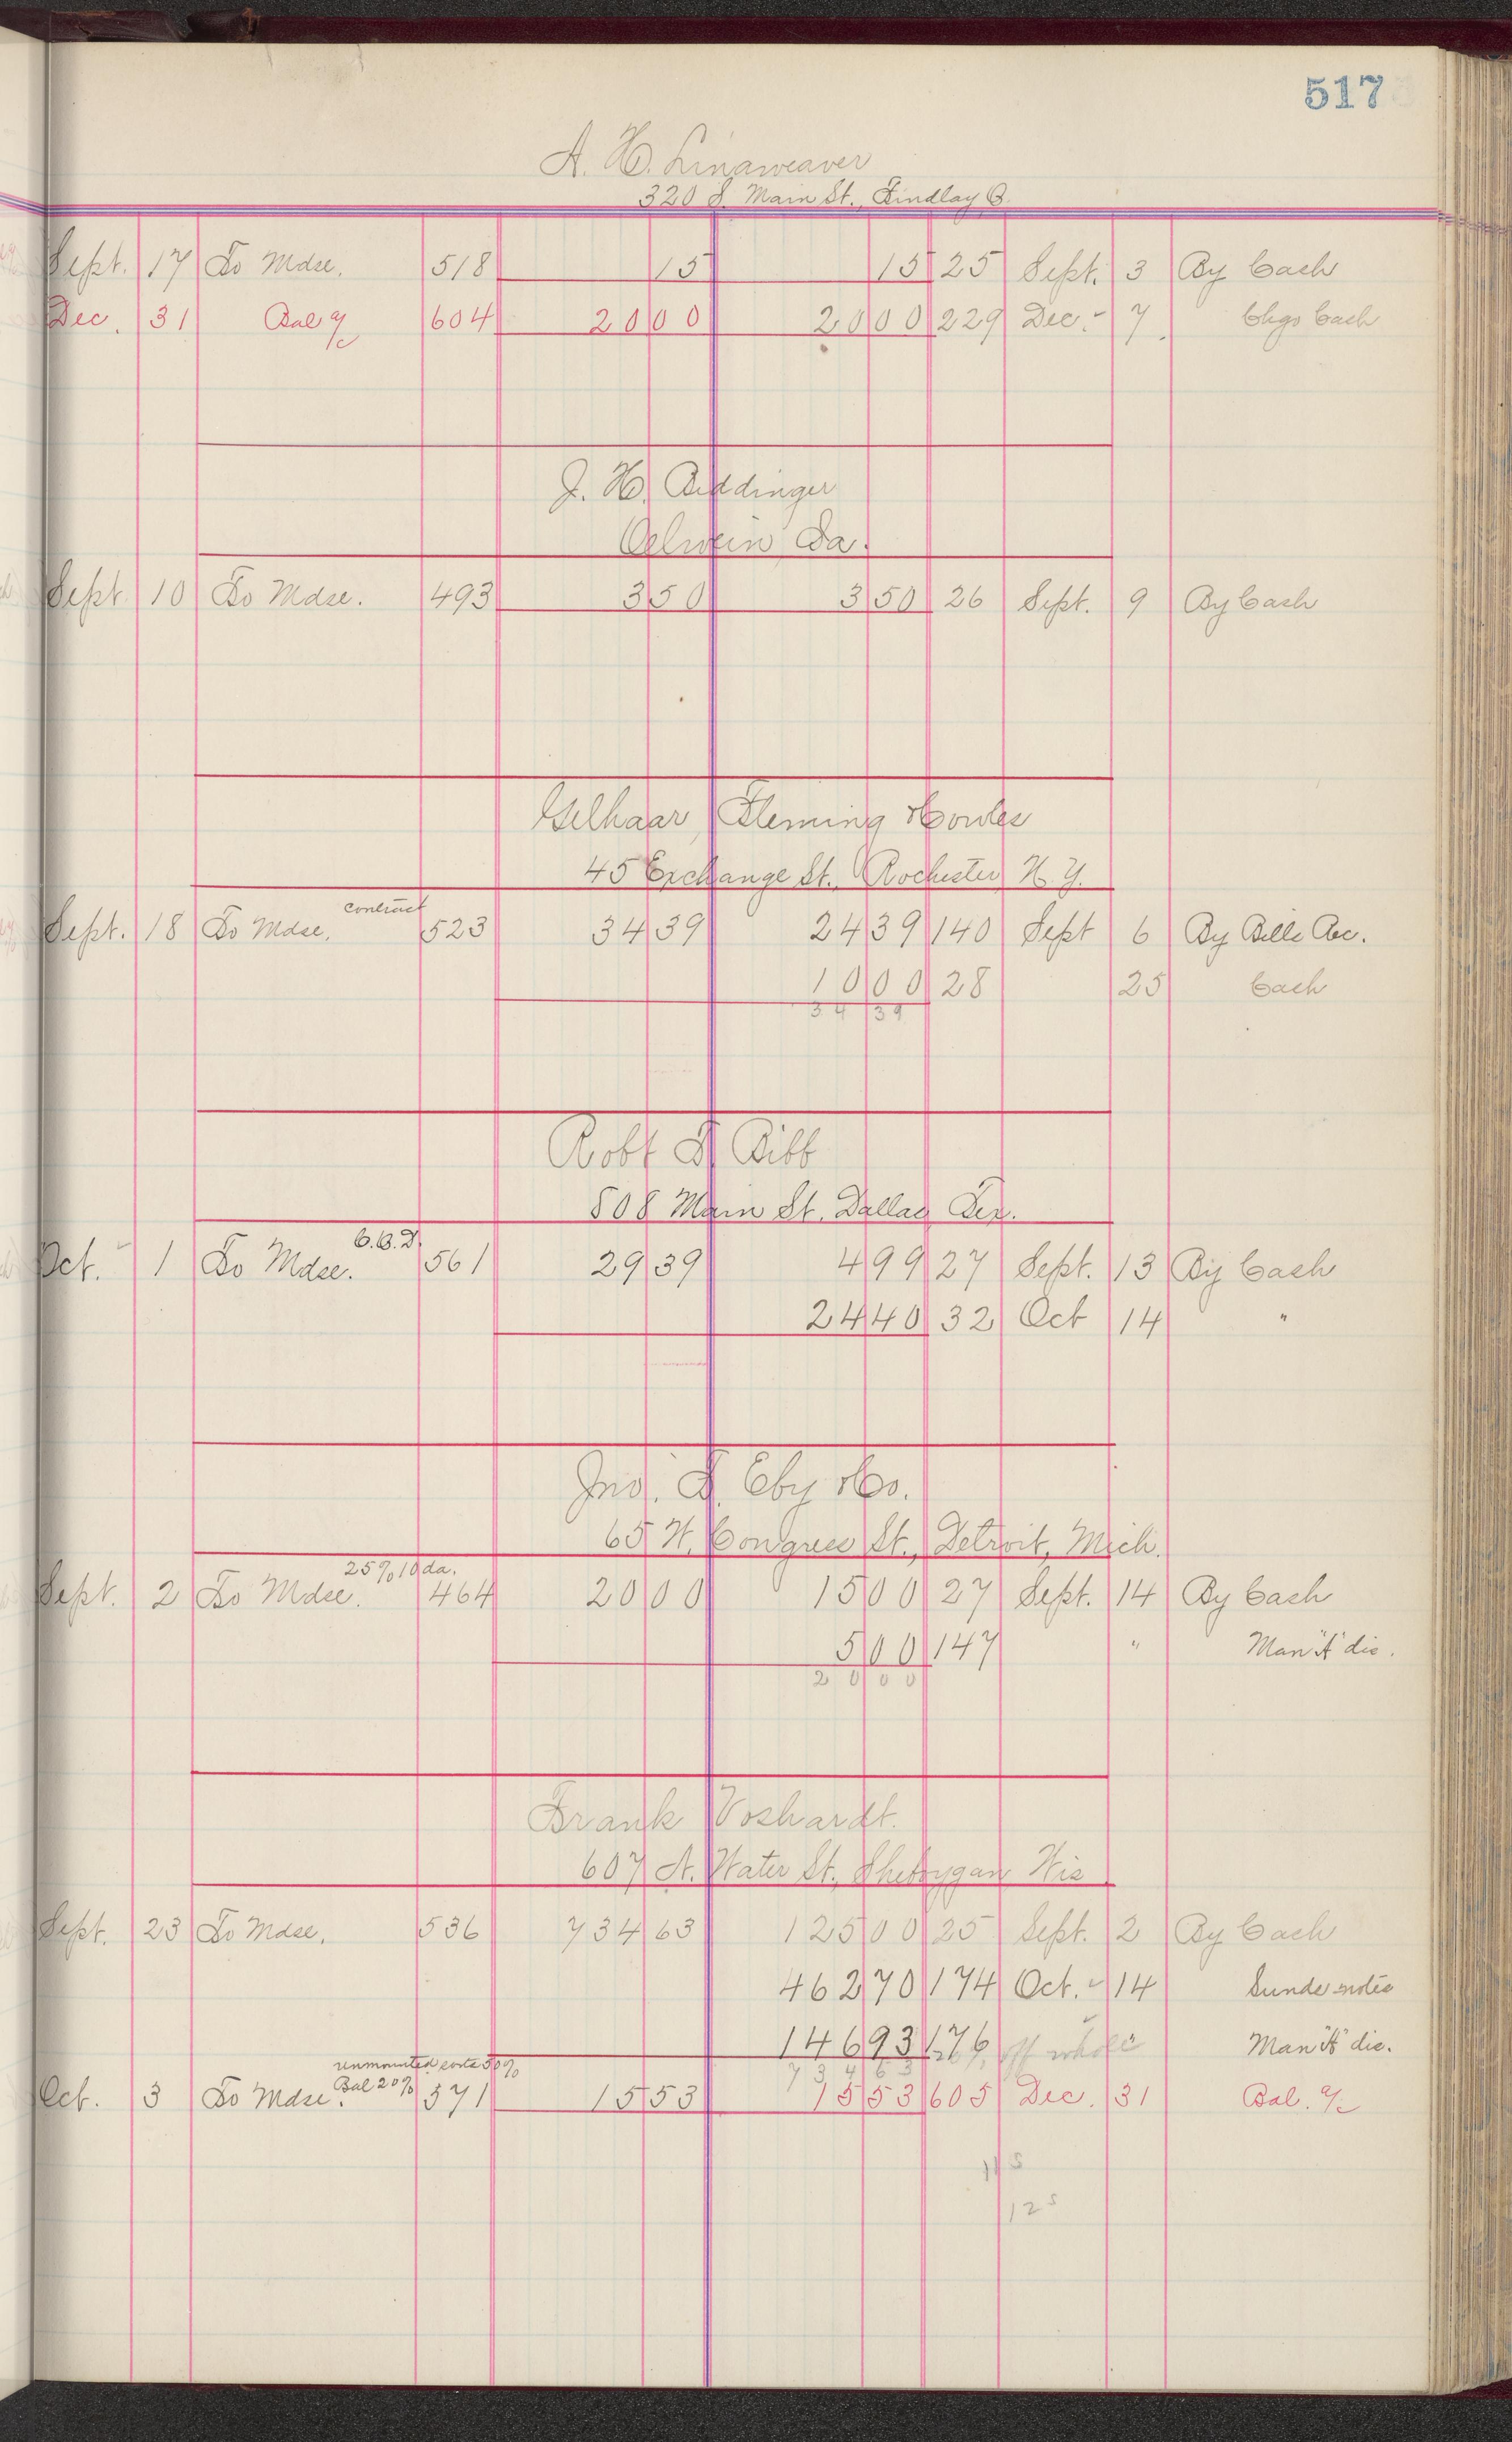 517
A. H. Linaweaver
320 S. Main St., Findlay O.
Sept. 17 To Mdse. 518 15 15 25 Sept. 3 By Cash
Dec. 31 Bal a/c 604 20 00 20 00 229 Dec. 7 Chgs Cash
J. H. Biddinger
Oelwein Ia.
Sept 10 To Mdse. 493 3 50 3 50 26 Sept. 9 By Cash
Gelhaar, Fleming & Cowles
45 Exchange St., Rochester, N. Y.
contract
Sept. 18 To Mdse. 523 34 39 24 39 140 Sept 6 By Bills Rec.
10 00 28 25 Cash
34 39
Robt F. Bibb
508 Main St. Dallas Tex.
C.O.D.
Oct. 1 To Mdse. 561 29 39 4 99 27 Sept. 13 By Cash
24 40 32 Oct 14 "
Jno. F. Eby & Co.
65 W. Congress St., Detroit, Mich.
25% 10 da.
Sept. 2 To Mdse. 464 20 00 15 00 27 Sept. 14 By Cash
5 00 147 " Man "A" dis.
20 00
Frank Voshardt.
607 N. Water St., Sheboygan Wis
Sept. 23 To Mdse. 536 734 63 125 00 25 Sept. 2 By Cash
462 70 174 Oct. 14 Sunds notes
146 93 176 off whole Man "A" dis.
734 63
unmounted cuts 50%
Bal 20%
Oct. 3 To Mdse. 571 15 53 15 53 605 Dec. 31 Bal. a/c
11 5
12 5